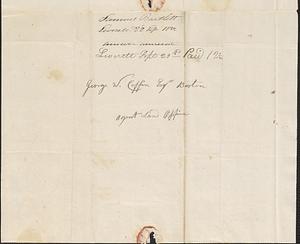 Samuel Bartlett
Leverett 22 Sept 18
answer
Leverett Sept 23d Paid 12½
George W. Coffin Esq Boston
Agent Land Office